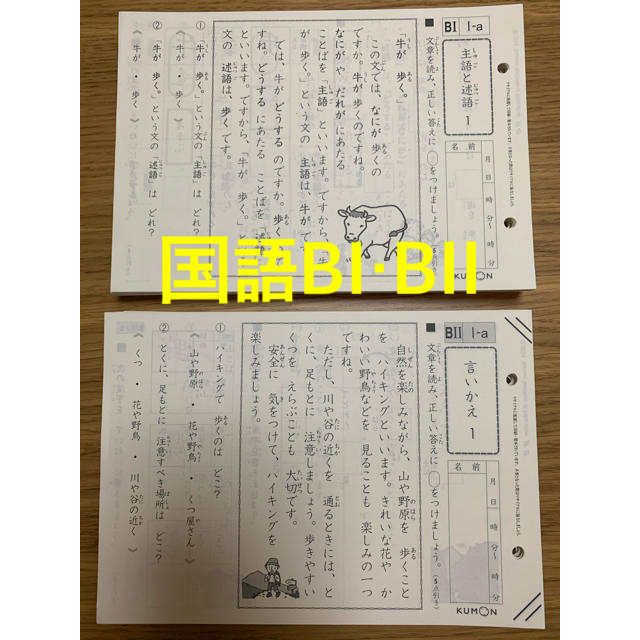 BI 1-a
主語と述語 1
名前
月 日
時 分〜 時 分
■文章を読み、正しい答えに○をつけましょう。
「牛が 歩く。」
この文では、なにが 歩くの
ですか。牛が 歩くのですね。
なにが や だれが にあたる
ことばを「主語」といいます。ですから、「牛
が 歩く。」という文の 主語は、牛が です。
では、牛が どうする のですか。歩く
すね。どうする にあたる ことばを「述語」
といいます。ですから、「牛が 歩く。」と
文の 述語は、歩く です。
① 「牛が 歩く。」という文の「主語」は どれ?
《 牛が ・ 歩く 》
② 「牛が 歩く。」という文の「述語」は どれ?
《 牛が ・ 歩く 》
KUMON
国語BI・BII
BII 1-a
言いかえ 1
名前
月 日
時 分〜 時 分
■文章を読み、正しい答えに○をつけましょう。(5点引き)
自然を楽しみながら、山や野原を 歩くこと
を ハイキングといいます。きれいな花や か
わいい野鳥などを 見ることも 楽しみの一つ
ですね。
ただし、川や谷の近くを 通るときには、と
くに、足もとに 注意しましょう。歩きやすい
くつを えらぶことも 大切です。
安全に 気をつけて、ハイキングを
楽しみましょう。
① ハイキングで 歩くのは どこ?
《 山や野原 ・ 花や野鳥 ・ くつ屋さん 》
② とくに、足もとに 注意すべき場所は どこ?
《 くつ ・ 花や野鳥 ・ 川や谷の近く 》
KUMON